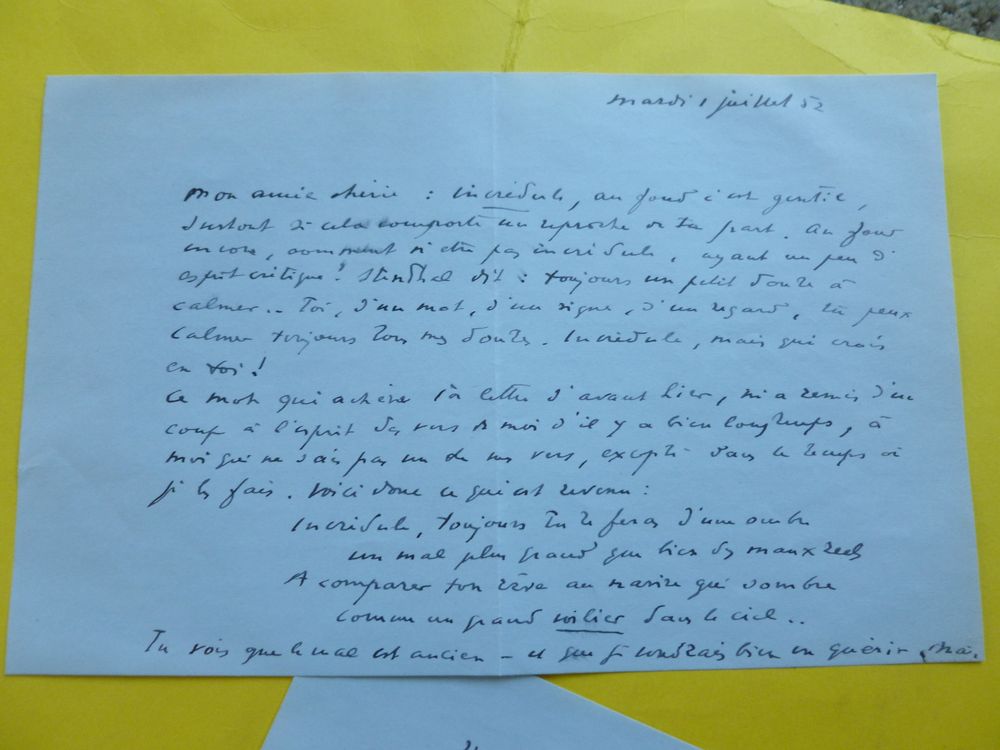 mardi 1 juillet 52
Mon amie chérie : incrédule, au fond c'est gentil,
surtout si cela comporte un reproche de ta part. Au fond
encore, comment n'être pas incrédule, ayant un peu d'
esprit critique! Stendhal dit : toujours un petit doute à
calmer.. Toi, d'un mot, d'un signe, d'un regard, tu peux
calmer toujours tous mes doutes. Incrédule, mais qui crois
en toi!
Ce mot qui achève ta lettre d'avant hier, m'a remis d'un
coup à l'esprit des vers de moi d'il y a bien longtemps, à
moi qui ne sais pas un de mes vers, excepté dans le temps où
je les fais. Voici donc ce qui est revenu :
Incrédule, toujours tu te feras d'une ombre
un mal plus grand que bien des maux réels
A comparer ton rêve au navire qui sombre
comme un grand voilier dans le ciel..
Tu vois que le mal est ancien – et que je voudrais bien en guérir